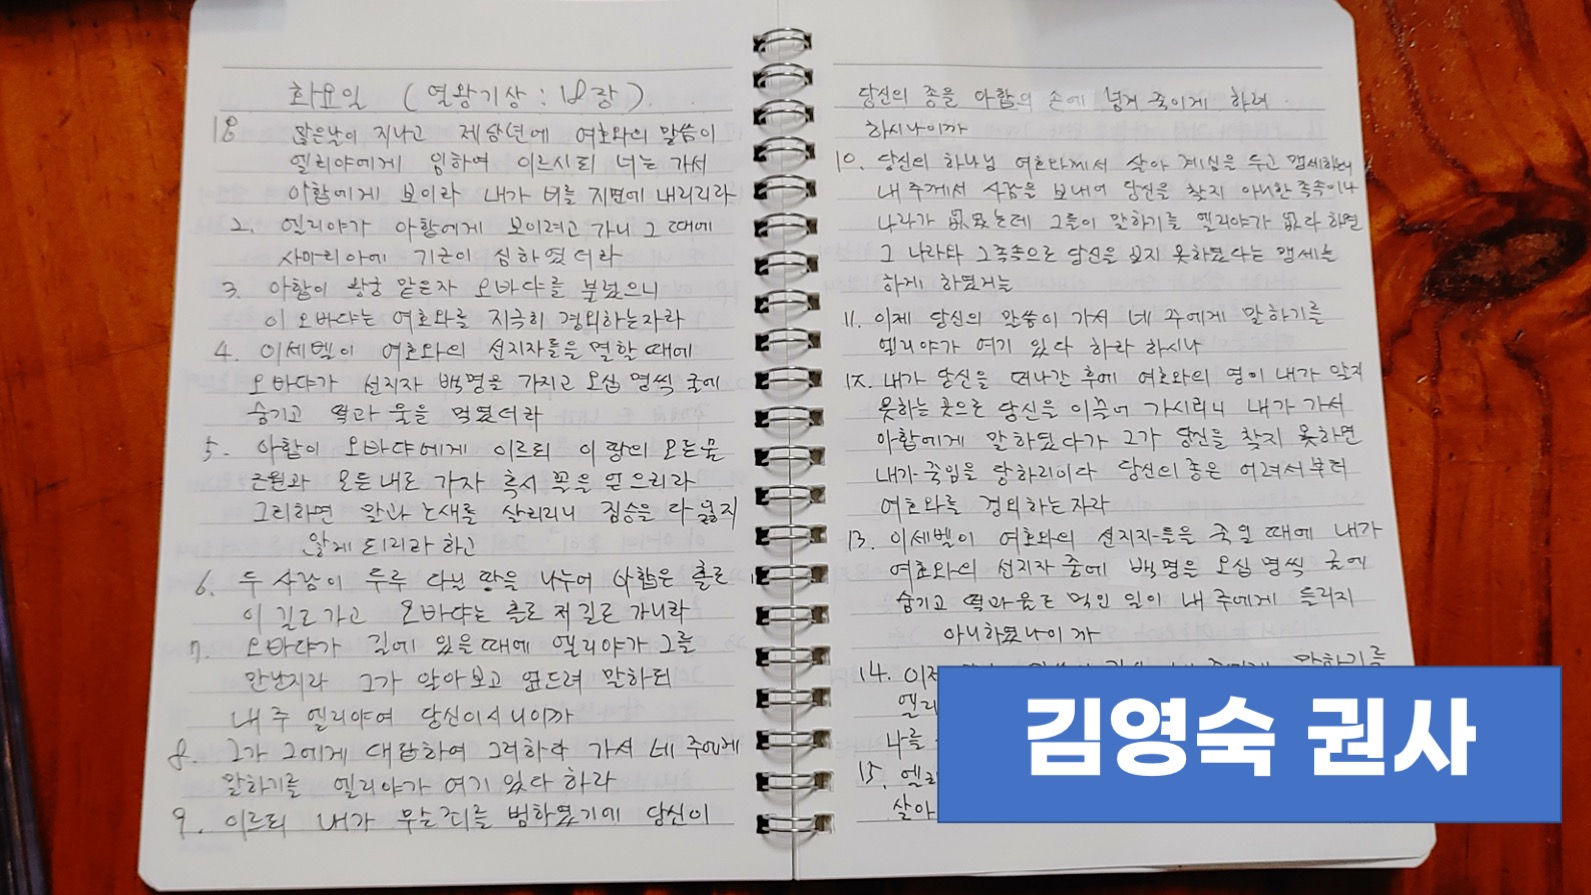 화요일 (열왕기상 : 18장).
18 많은날이 지나고 제삼년에 여호와의 말씀이
엘리야에게 임하여 이르시되 너는 가서
아합에게 보이라 내가 비를 지면에 내리리라
2. 엘리야가 아합에게 보이려고 가니 그 때에
사마리아에 기근이 심하였더라
3. 아합이 왕궁 맡은자 오바댜를 불렀으니
이 오바댜는 여호와를 지극히 경외하는자라
4. 이세벨이 여호와의 선지자들을 멸할 때에
오바댜가 선지자 백명을 가지고 오십 명씩 굴에
숨기고 떡과 물을 먹였더라
5. 아합이 오바댜에게 이르되 이 땅의 모든물
근원과 모든 내로 가자 혹시 꼴을 얻으리라
그리하면 말과 노새를 살리리니 짐승을 다 잃지
않게 되리라 하고
6. 두 사람이 두루 다닐 땅을 나누어 아합은 홀로
이 길로 가고 오바댜는 홀로 저 길로 가니라
7. 오바댜가 길에 있을 때에 엘리야가 그를
만난지라 그가 알아보고 엎드려 말하되
내 주 엘리야여 당신이시니이까
8. 그가 그에게 대답하여 그러하다 가서 네 주에게
말하기를 엘리야가 여기 있다 하라
9. 이르되 내가 무슨죄를 범하였기에 당신이
당신의 종을 아합의 손에 넘겨 죽이게 하려
하시나이까
10. 당신의 하나님 여호와께서 살아 계심을 두고 맹세하노니
내 주께서 사람을 보내어 당신을 찾지 아니한 족속이나
나라가 없었는데 그들이 말하기를 엘리야가 없다 하면
그 나라와 그 족속으로 당신을 보지 못하였다는 맹세를
하게 하였거늘
11. 이제 당신의 말씀이 가서 네 주에게 말하기를
엘리야가 여기 있다 하라 하시나
12. 내가 당신을 떠나간 후에 여호와의 영이 내가 알지
못하는 곳으로 당신을 이끌어 가시리니 내가 가서
아합에게 말하였다가 그가 당신을 찾지 못하면
내가 죽임을 당하리이다 당신의 종은 어려서부터
여호와를 경외하는자라
13. 이세벨이 여호와의 선지자들을 죽일 때에 내가
여호와의 선지자 중에 백명을 오십 명씩 굴에
숨기고 떡과 물로 먹인 일이 내 주에게 들리지
아니하였나이까
14. 이제 말하기를
엘리
나를
15. 엘리
살아
김영숙 권사